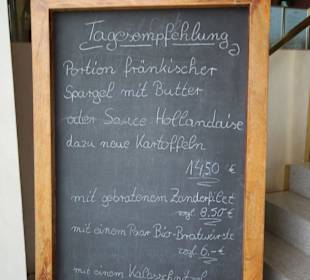 Tagesempfehlung
Portion fränkischer
Spargel mit Butter
oder Sauce Hollandaise
dazu neue Kartoffeln
14.50 €
mit gebratenem Zanderfilet
zzgl. 8,50 €
mit einem Paar Bio-Bratwürste
zzgl. 6,- €
mit einem Kalbsschnitzel